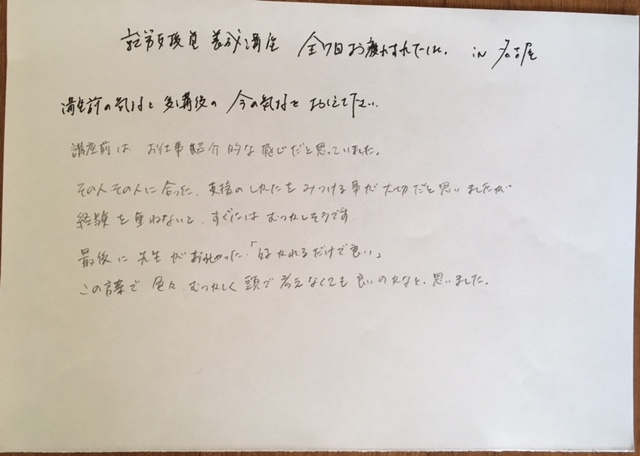 就労支援員 養成講座 全7回お疲れさまでした。 in 名古屋
講座前の気持ちと 受講後の 今の気持ちを おしえて下さい
講座前は お仕事紹介的な感じだと思っていました。
その人その人に合った、支援のしかたをみつける事が大切だと思いましたが
経験を重ねないと、すぐにはむつかしそうです
最後に先生がおっしゃった「好かれるだけで良い」
この言葉で色々、むつかしく頭で考えなくても良いのかなと、思いました。